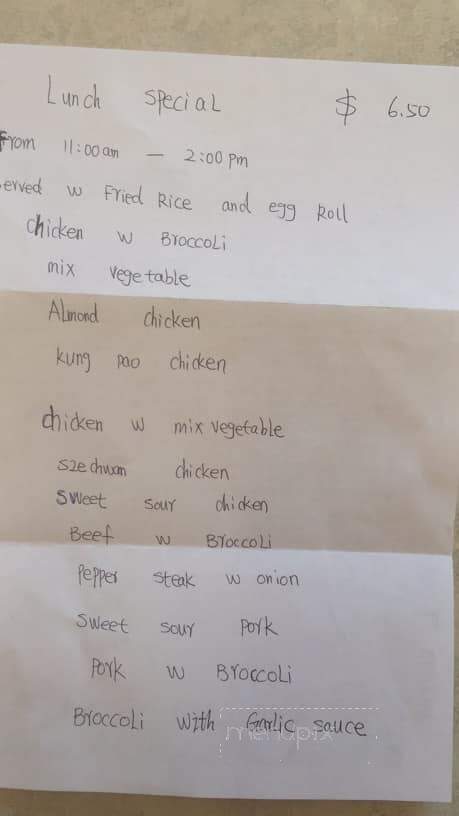 Lunch special $ 6.50
From 11:00am — 2:00pm
erved w Fried Rice and egg Roll
chicken w Broccoli
mix vegetable
Almond chicken
kung pao chicken
chicken w mix vegetable
szechuan chicken
sweet sour chicken
Beef w Broccoli
Pepper steak w onion
sweet sour pork
pork w Broccoli
Broccoli with Garlic sauce
menupix